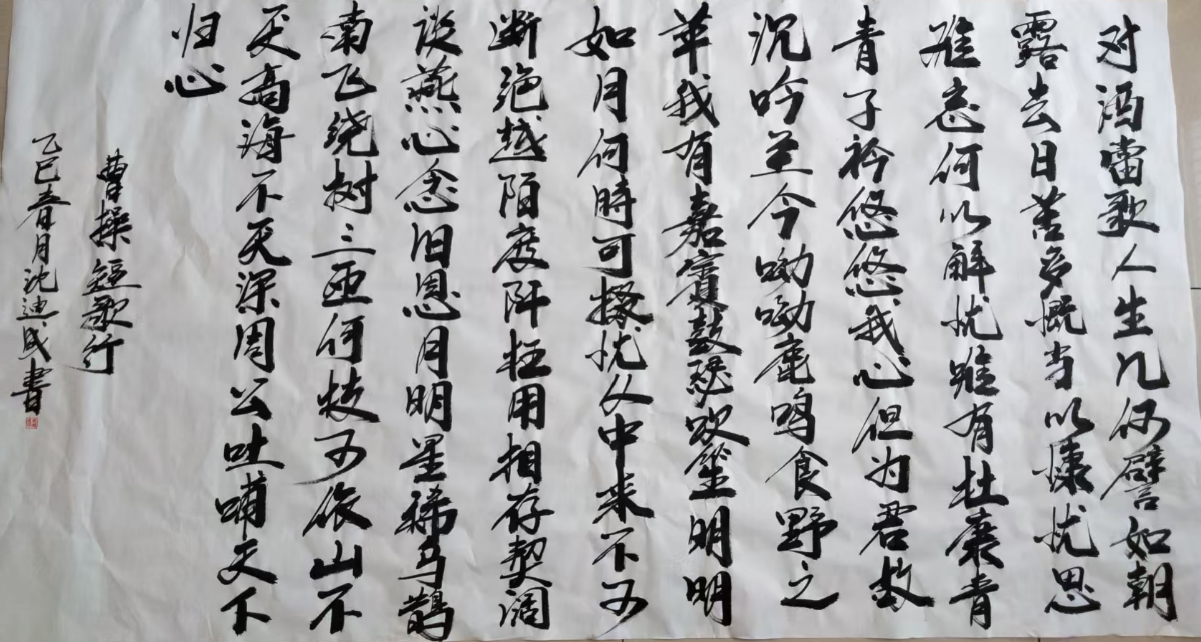 对酒當歌人生几何譬如朝
露去日苦多慨当以慷忧思
难忘何以解忧唯有杜康青
青子衿悠悠我心但为君故
沉吟至今呦呦鹿鸣食野之
苹我有嘉賓鼓瑟吹笙明明
如月何時可掇忧从中来不可
断绝越陌度阡枉用相存契阔
谈燕心念旧恩月明星稀乌鹊
南飞绕树三匝何枝可依山不
厌高海不厌深周公吐哺天下
归心
曹操短歌行
乙巳春月沈迪民書